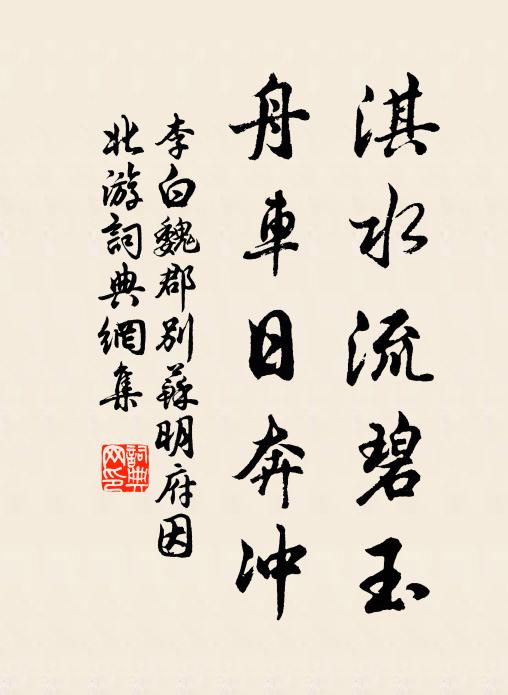 淇水流碧玉
舟車日奔冲
李白魏郡別蘇明府因
北游詞典網集
詞典
网印